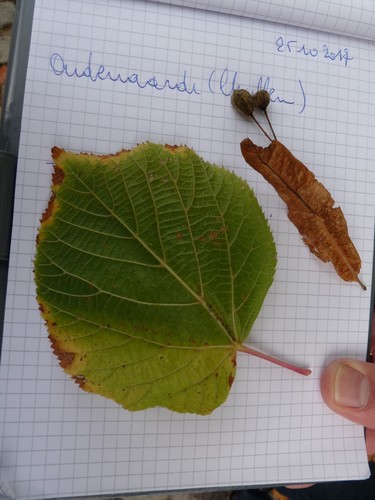 25.10.2017
Oudenaarde (